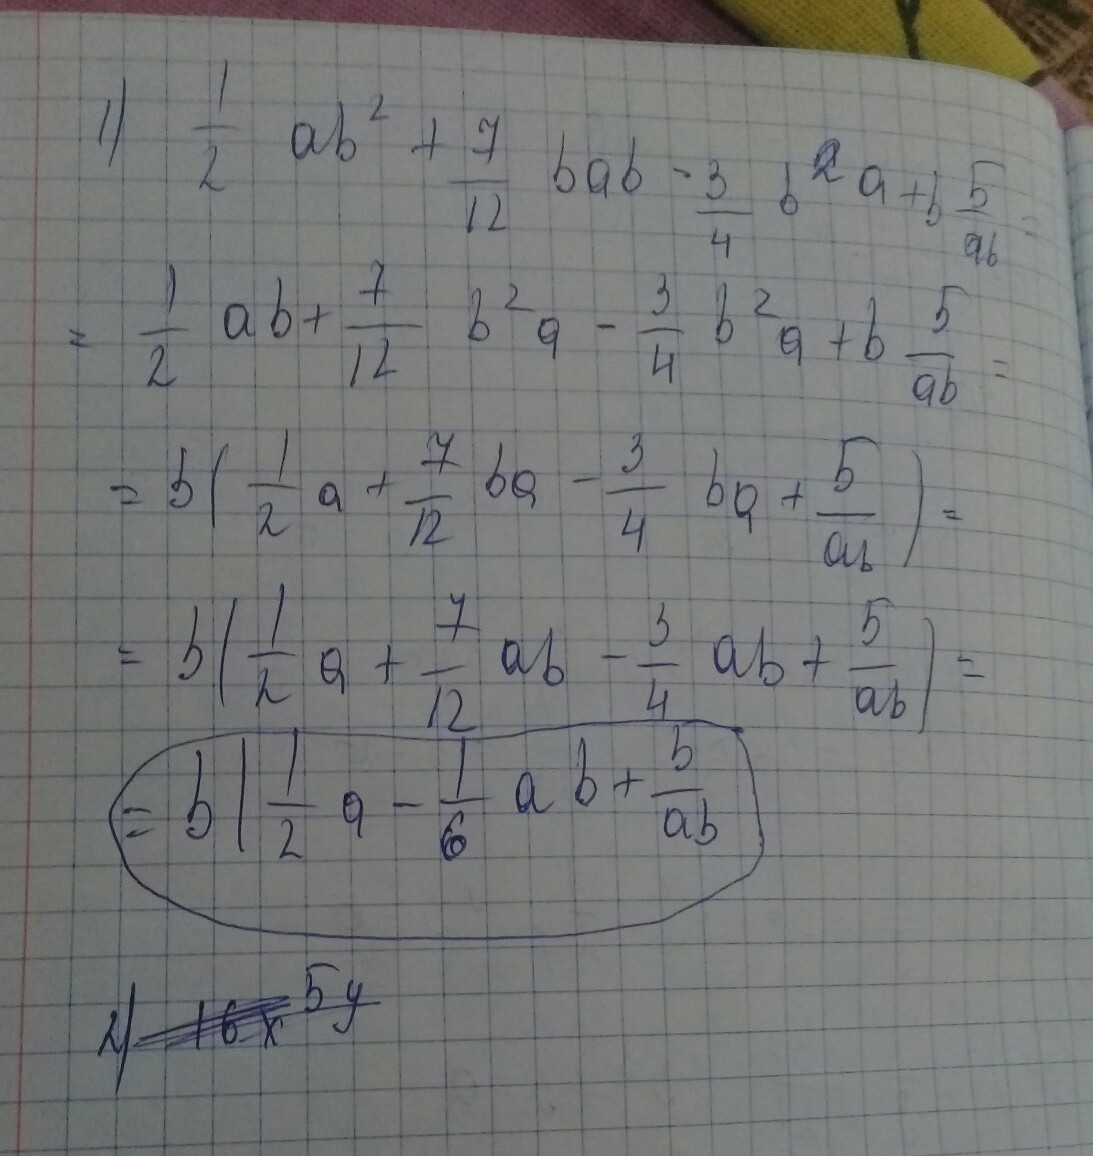 1) 1/2 ab² + 7/12 bab - 3/4 b²a + b 5/ab =
= 1/2 ab + 7/12 b²a - 3/4 b²a + b 5/ab =
= b( 1/2 a + 7/12 ba - 3/4 ba + 5/ab ) =
= b( 1/2 a + 7/12 ab - 3/4 ab + 5/ab ) =
= b( 1/2 a - 1/6 ab + 5/ab
2) 16x⁵y